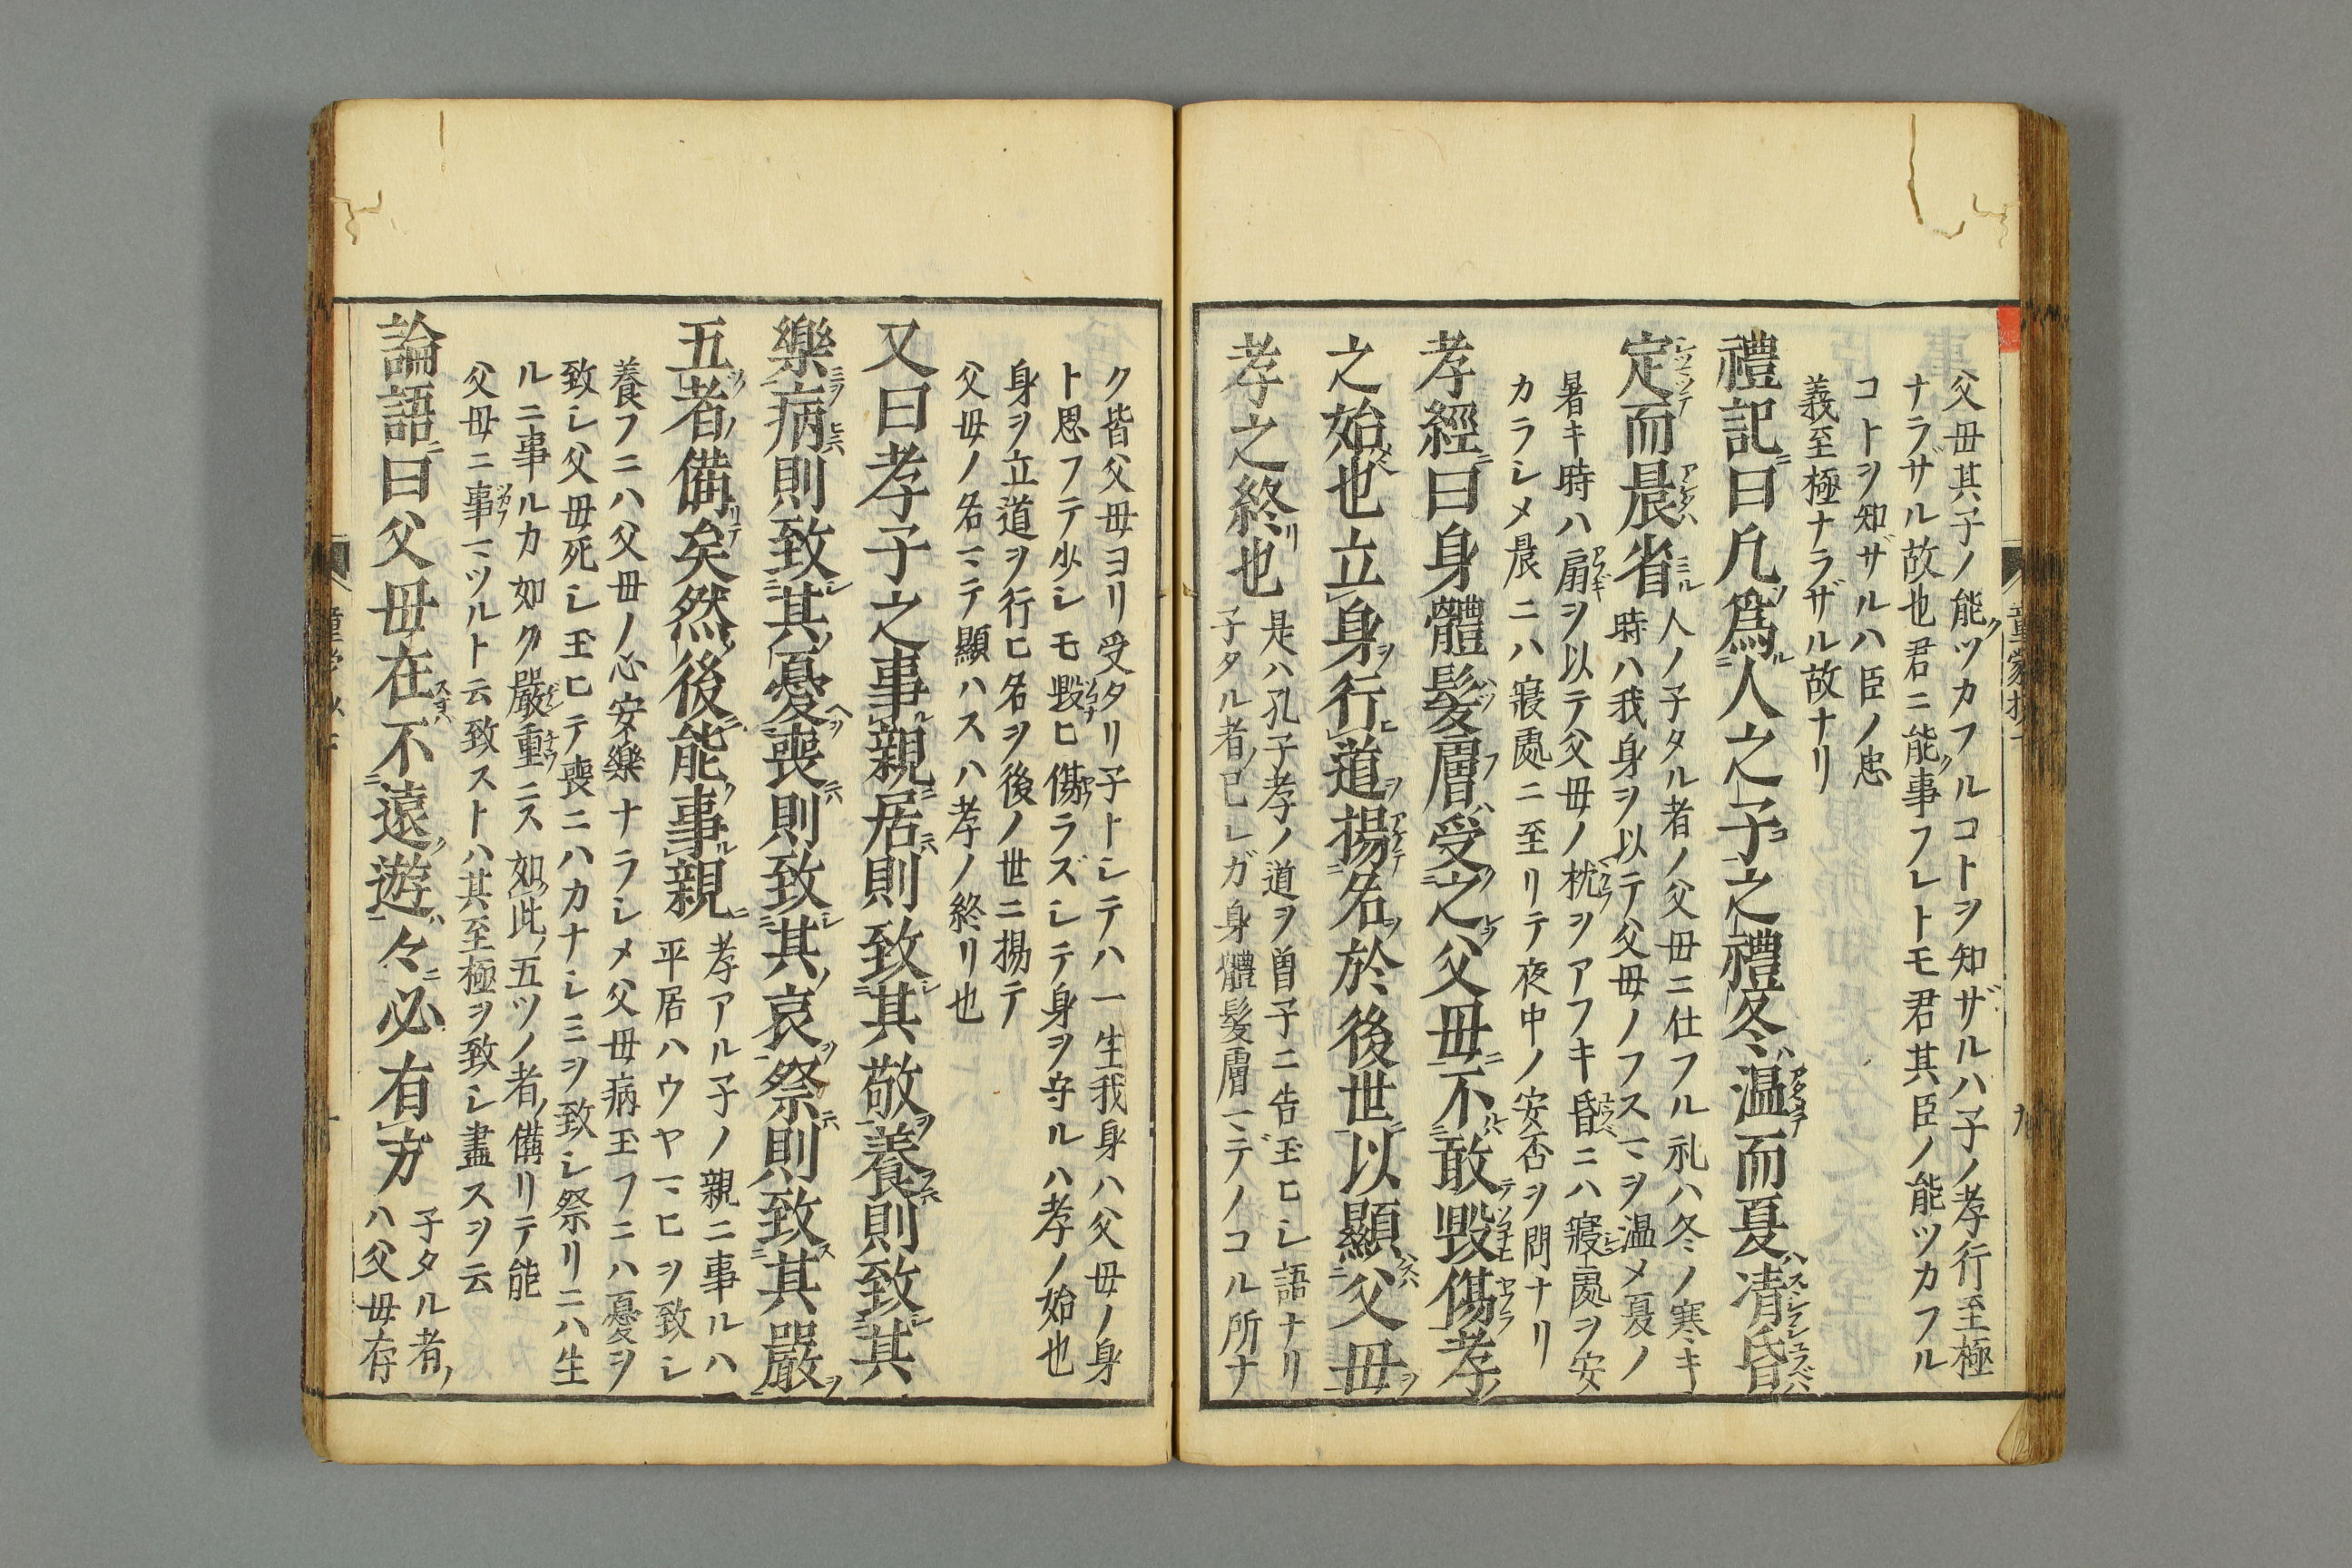 父毋其子ノ能ツカフルコトヲ知ザルハ子ノ孝行至極
ナラザル故也君ニ能事フレトモ君其臣ノ能ツカフル
コトヲ知ザルハ臣ノ忠
義至極ナラザル故ナリ
禮記曰凡爲人之子之禮冬温而夏凊昏
定而晨省
人ノ子タル者ノ父毋ニ仕フル礼ハ冬ノ寒キ
時ハ我身ヲ以テ父毋ノフスマヲ温メ夏ノ
暑キ時ハ扇ヲ以テ父毋ノ枕ヲアフキ昏ニハ寢處ヲ安
カラシメ晨ニハ寢處ニ至リテ夜中ノ安否ヲ問ナリ
孝經曰身體髮膚受之父毋不敢毀傷孝
之始也立身行道揚名於後世以顯父毋
孝之終也
是ハ孔子孝ノ道ヲ曽子ニ告玉ヒシ語ナリ
子タル者己レガ身體髮膚マデノコル所ナ
ク皆父毋ヨリ受タリ子トシテハ一生我身ハ父毋ノ身
ト思フテ少シモ毀ヒ傷ラズシテ身ヲ守ルハ孝ノ始也
身ヲ立道ヲ行ヒ名ヲ後ノ世ニ揚テ
父毋ノ名マデ顯ハスハ孝ノ終リ也
又曰孝子之事親居則致其敬養則致其
樂病則致其憂喪則致其哀祭則致其嚴
五者備矣然後能事親
孝アル子ノ親ニ事ルハ
平居ハウヤマヒヲ致シ
養フニハ父毋ノ心安樂ナラシメ父毋病玉フニハ憂ヲ
致シ父毋死シ玉ヒテ喪ニハカナシミヲ致シ祭リニハ生
ルニ事ルカ如ク嚴重ニス如此五ツノ者備リテ能
父毋ニ事マツルト云致ストハ其至極ヲ致シ盡スヲ云
論語曰父毋在不遠遊々必有方
子タル者
ハ父毋存